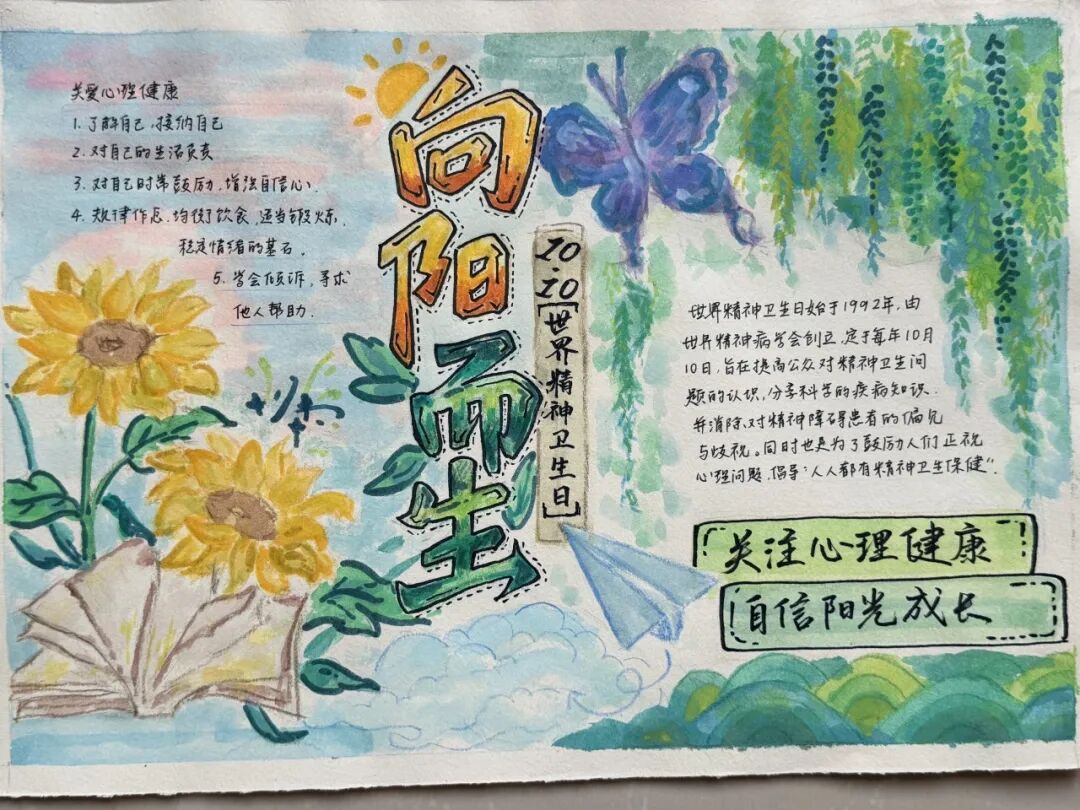 关爱心理健康
1.了解自己.接纳自己
2.对自己的生活负责
3.对自己时常鼓励.增强自信心.
4.规律作息.均衡饮食,适当锻炼,
稳定情绪的基石.
5.学会倾诉,寻求
他人帮助.
向阳而生
10.10【世界精神卫生日】
世界精神卫生日始于1992年,由
世界精神病学会创立,定于每年10月
10日,旨在提高公众对精神卫生问
题的认识,分享科学的疾病知识.
并消除对精神障碍患者的偏见
与歧视。同时也是为了鼓励人们正视
心理问题,倡导"人人都有精神卫生保健".
关注心理健康
自信阳光成长